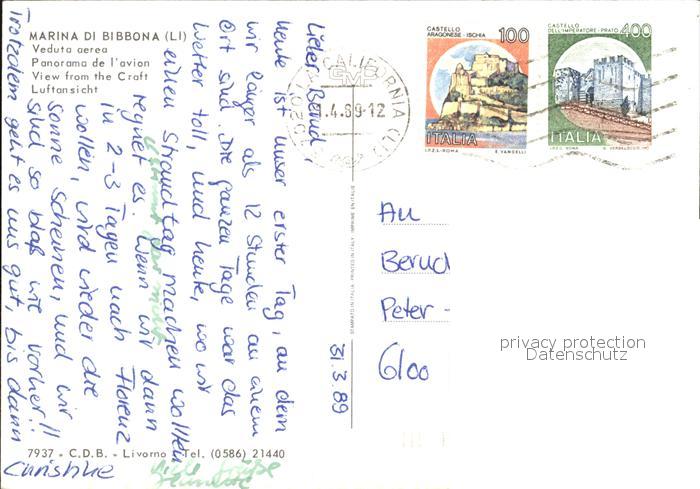 MARINA DI BIBBONA (LI)
Veduta aerea
Panorama de l'avion
View from the Craft
Luftansicht
Lieber Bernd,
heute ist unser erster Tag, an dem
wir länger als 12 Stunden an einem
Ort sind. Die ganzen Tage war das
Wetter toll, und heute, wo wir
einen Strandtag machen wollten
regnet es. Wenn wir dann
in 2-3 Tagen nach Florenz
wollen, wird wieder die
Sonne scheinen, und wir
sind so blaß wie vorher!!
Trotzdem geht es uns gut, bis dann
Christine
stimmt gar nicht
viele Grüße
31.3.89
7937 - C.D.B. - Livorno - Tel. (0586) 21440
STAMPATO IN ITALIA - PRINTED IN ITALY - IMPRIMÉ EN ITALIE
CALIFORNIA (LI)
.4.89-12
CASTELLO
ARAGONESE - ISCHIA
100
ITALIA
I.P.Z.S. - ROMA E. VANGELLI
CASTELLO
DELL'IMPERATORE - PRATO
400
ITALIA
I.P.Z.S. ROMA
An
Bernd
Peter -
6100
privacy protection
Datenschutz